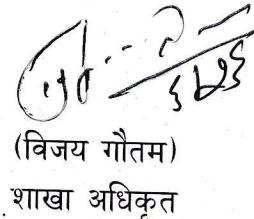 (विजय गौतम)
शाखा अधिकृत